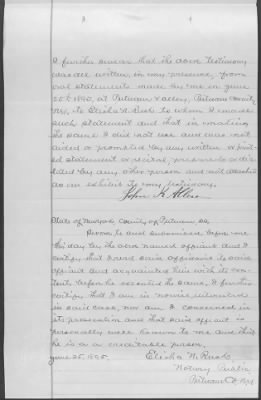 I further swear that the above testimony
was all written in my presence, from
oral statements made by me on June
25th 1890, at Putnam Valley, Putnam County
N.Y., to Elisha N. Rusk to whom I made
such statement and that in making
the same I did not use and was not
aided or prompted by any written or print-
ed statement or recital, prepared or dic-
tated by any other person and not attached
as an exhibit to my testimony.
John H. Allen
State of New York County of Putnam SS
Sworn to and subscribed before me
this day by the above named affiant and I
certify that I read said affidavit to said
affiant and acquainted him with its con-
tents before he executed the same. I further
certify that I am in nowise interested
in said case, nor am I concerned in
its prosecution and that said affiant is
personally well known to me and that
he is a credible person.
June 25, 1890. Elisha N. Rusk
Notary Public
Putnam Co N.Y.